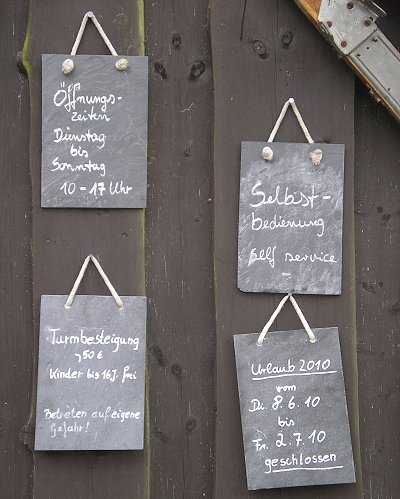 Öffnungs-
zeiten
Dienstag
bis
Sonntag
10 - 17 Uhr
Selbst-
bedienung
self service
Turmbesteigung
,50 €
Kinder bis 16J. frei
Betreten auf eigene
Gefahr!
Urlaub 2010
vom
Di. 8.6.10
bis
Fr. 2.7.10
geschlossen